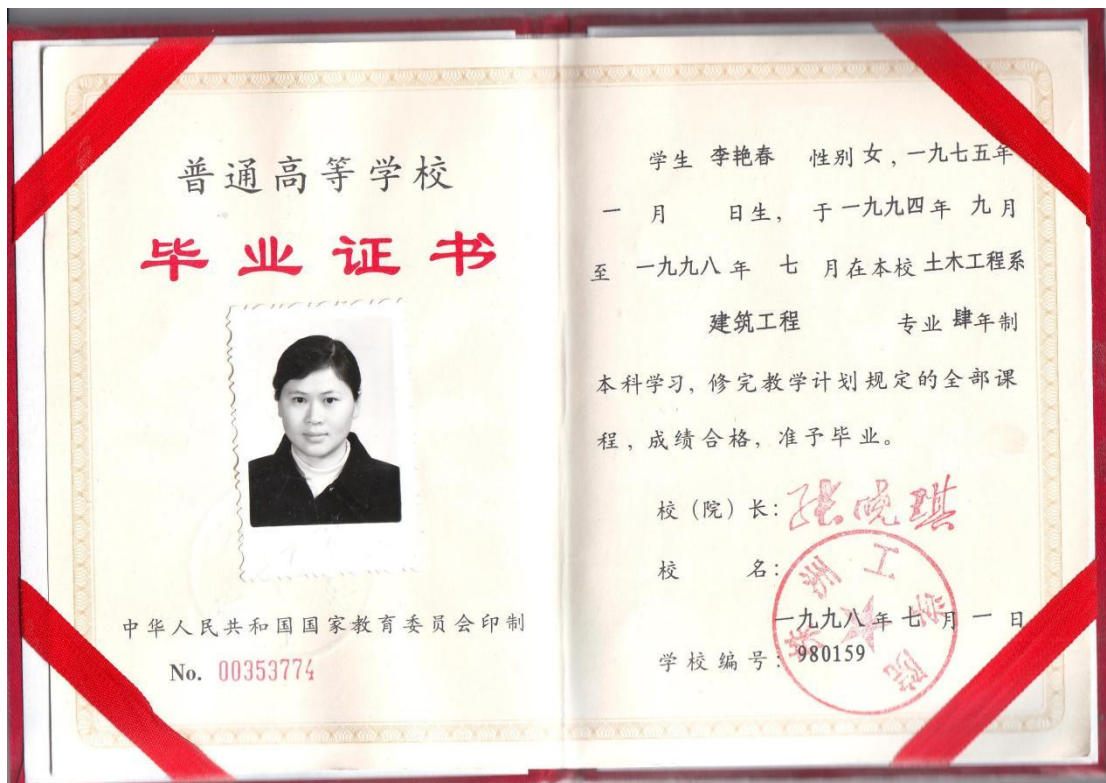 普通高等学校
毕业证书
中华人民共和国国家教育委员会印制
No. 00353774
学生 李艳春 性别 女，一九七五年
一 月 日生， 于一九九四年 九月
至 一九九八年 七 月在本校 土木工程系
建筑工程 专业 肆年制
本科学习，修完教学计划规定的全部课
程，成绩合格，准予毕业。
校（院）长：张晓琪
校 名：
一九九八年七月一日
学校编号：980159
工学院